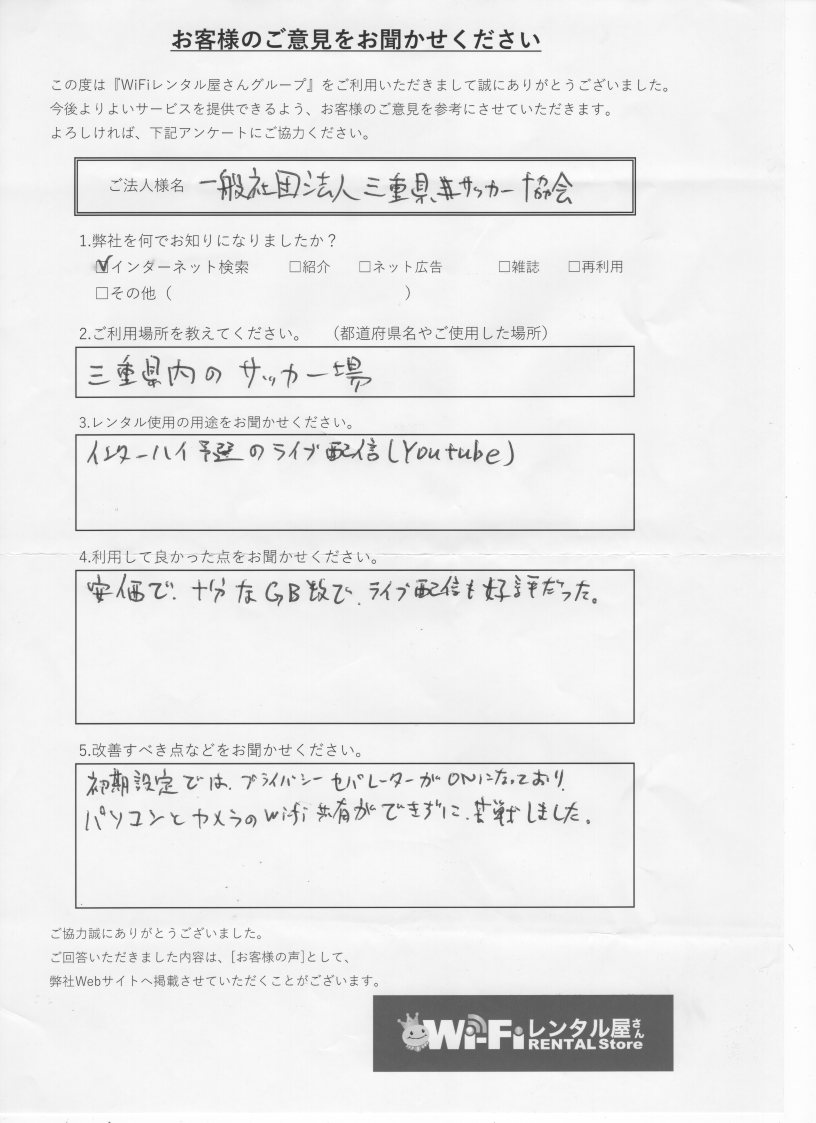 お客様のご意見をお聞かせください
この度は『WiFiレンタル屋さんグループ』をご利用いただきまして誠にありがとうございました。
今後よりよいサービスを提供できるよう、お客様のご意見を参考にさせていただきます。
よろしければ、下記アンケートにご協力ください。
ご法人様名 一般社団法人 三重県サッカー協会
1.弊社を何でお知りになりましたか？
☑インターネット検索 □紹介 □ネット広告 □雑誌 □再利用
□その他（ ）
2.ご利用場所を教えてください。 （都道府県名やご使用した場所）
三重県内のサッカー場
3.レンタル使用の用途をお聞かせください。
インターハイ予選のライブ配信(Youtube)
4.利用して良かった点をお聞かせください。
安価で、十分なGB数で、ライブ配信も好評だった。
5.改善すべき点などをお聞かせください。
初期設定では、プライバシーセパレーターがONになっており、
パソコンとカメラのwifi共有ができずに、苦戦しました。
ご協力誠にありがとうございました。
ご回答いただきました内容は、[お客様の声]として、
弊社Webサイトへ掲載させていただくことがございます。
Wi-Fiレンタル屋さん
RENTAL Store